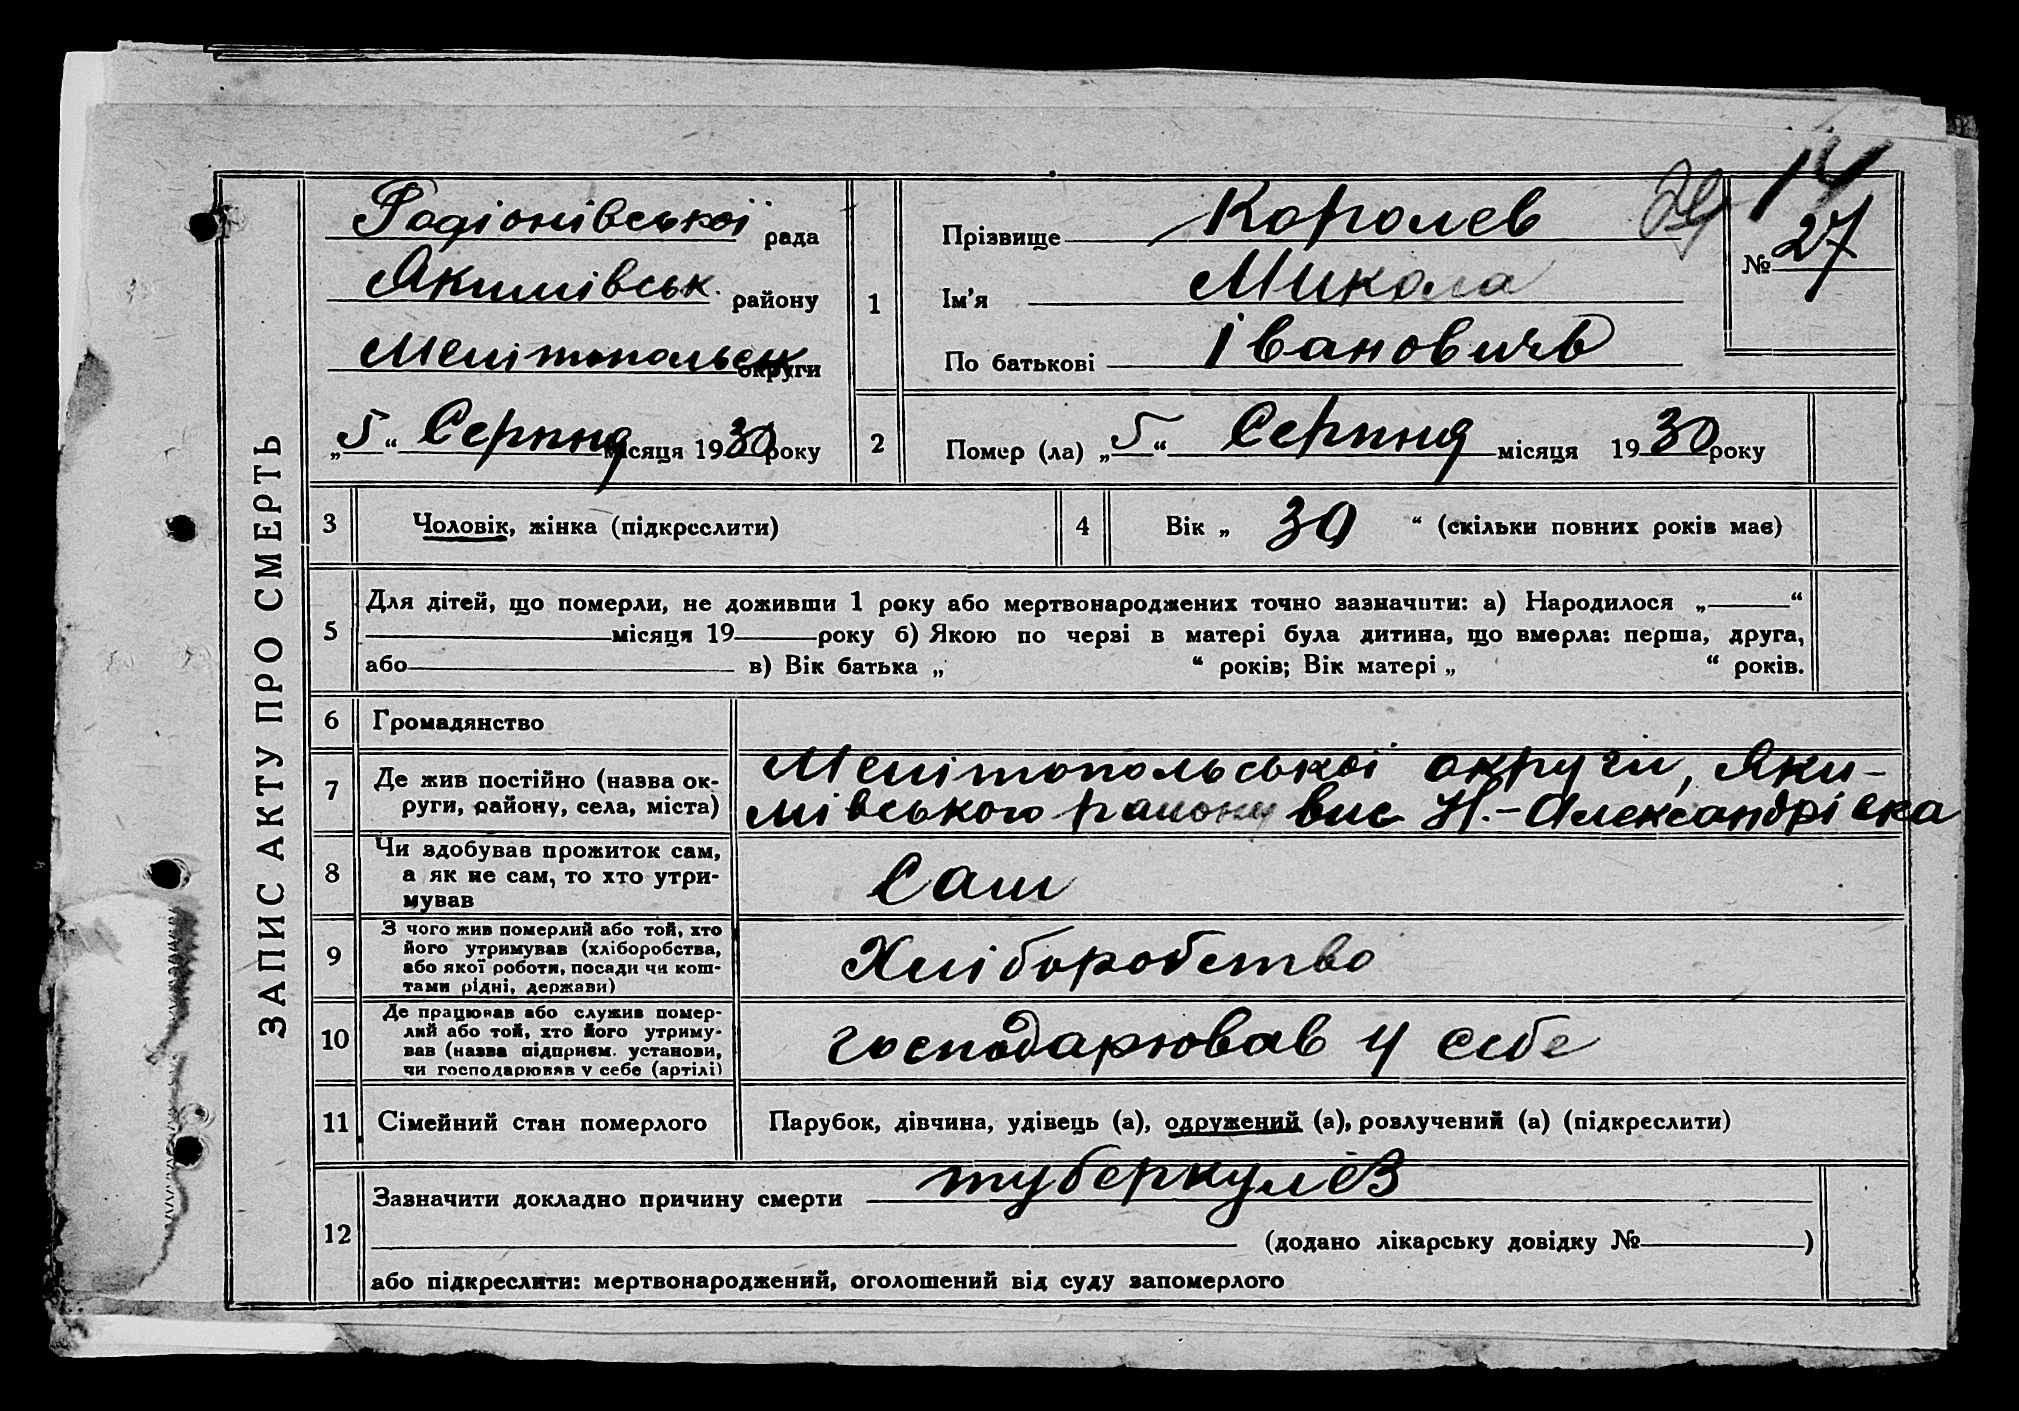 ЗАПИС АКТУ ПРО СМЕРТЬ
Радіонівської рада
Якимівськ. району
Мелітопольськ округи
„5“ Серпня місяця 1930 року
1
Прізвище Королев
Ім'я Микола
По батькові Івановичь
14
№ 27
2
Помер (ла) „5“ Серпня місяця 1930 року
3 Чоловік, жінка (підкреслити)
4 Вік „ 30 “ (скільки повних років має)
5
Для дітей, що померли, не доживши 1 року або мертвонароджених точно зазначити: а) Народилося „ “
місяця 19 року б) Якою по черзі в матері була дитина, що вмерла: перша, друга,
або в) Вік батька „ “ років; Вік матері „ “ років.
6 Громадянство
7 Де жив постійно (назва ок-
руги, району, села, міста)
Мелітопольської округи, Яки-
мівського району вис Н.-Александрівка
8 Чи здобував прожиток сам,
а як не сам, то хто утри-
мував
Сам
9 З чого жив померлий або той, хто
його утримував (хліборобства,
або якої роботи, посади чи кош-
тами рідні, держави)
Хліборобство
10 Де працював або служив помер-
лий або той, хто його утриму-
вав (назва підприєм. установи,
чи господарював у себе (артілі)
господарював у себе
11 Сімейний стан померлого
Парубок, дівчина, удівець (а), одружений (а), розлучений (а) (підкреслити)
12
Зазначити докладно причину смерти туберкульоз
(додано лікарську довідку № )
або підкреслити: мертвонароджений, оголошений від суду запомерлого